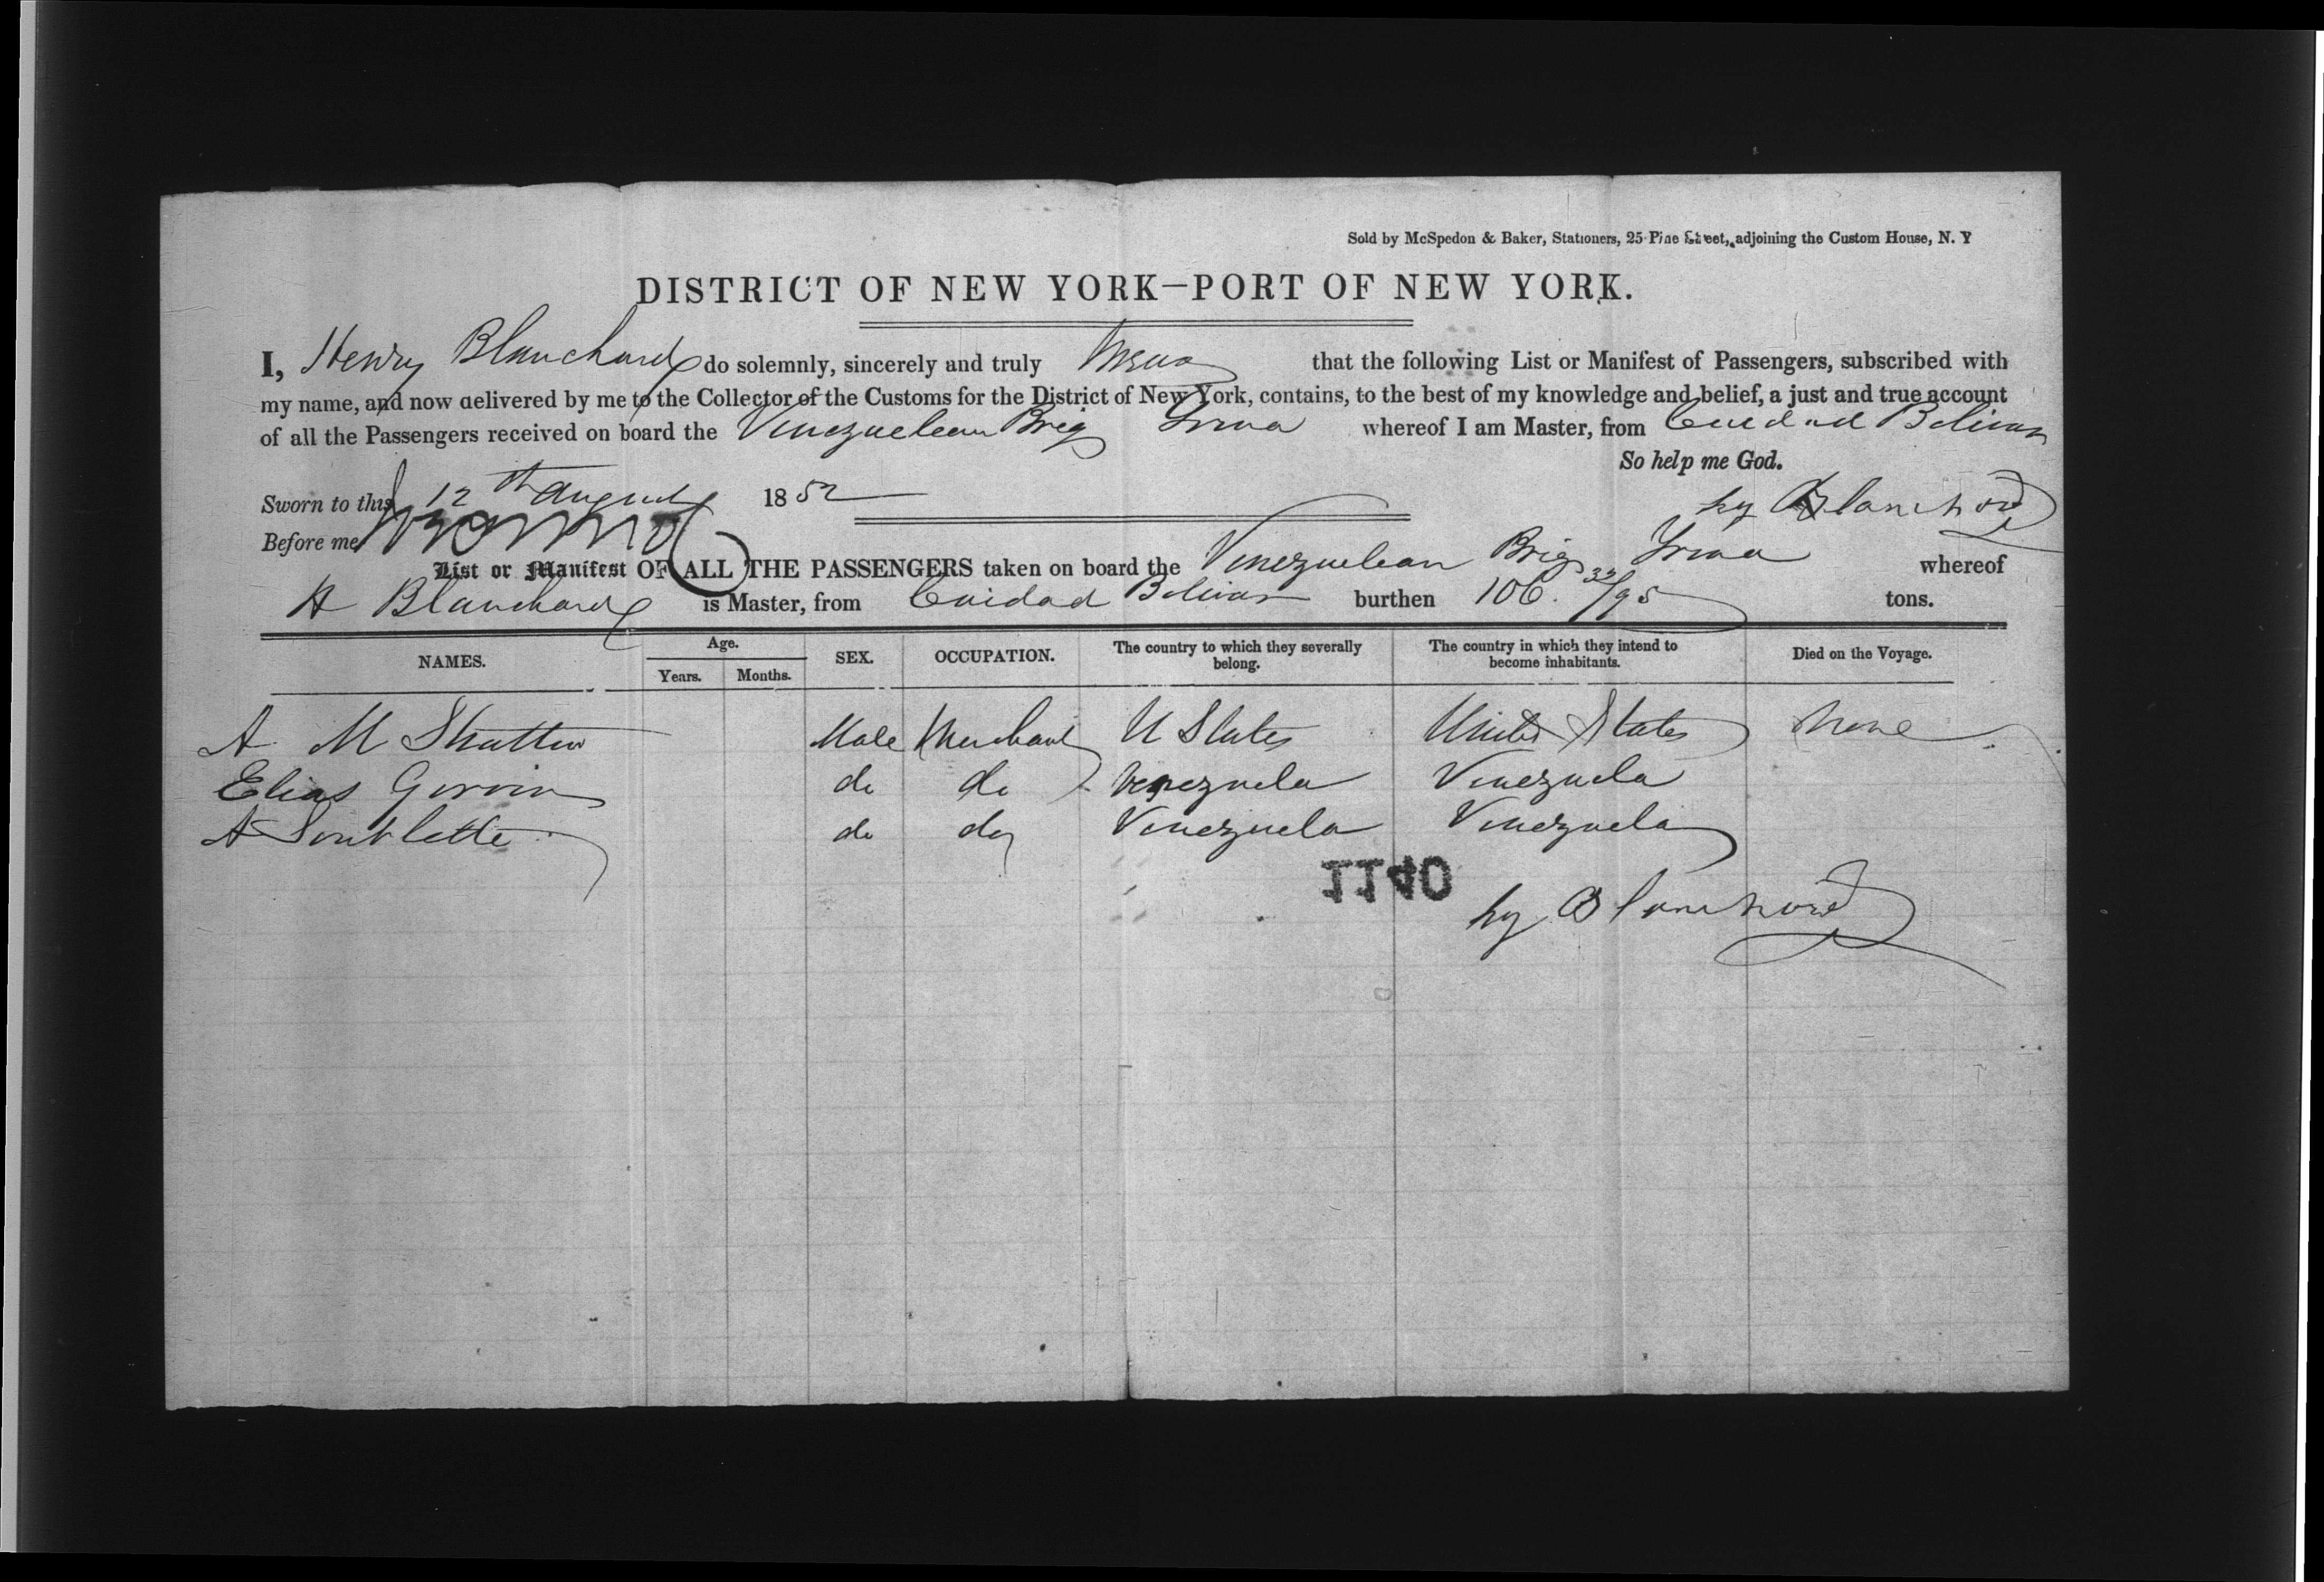 Sold by McSpedon & Baker, Stationers, 25 Pine Street, adjoining the Custom House, N. Y
DISTRICT OF NEW YORK—PORT OF NEW YORK.
I, Henry Blanchard do solemnly, sincerely and truly swear that the following List or Manifest of Passengers, subscribed with
my name, and now delivered by me to the Collector of the Customs for the District of New York, contains, to the best of my knowledge and belief, a just and true account
of all the Passengers received on board the Venezuelean Brig Irma whereof I am Master, from Cuidad Bolivar
So help me God.
Sworn to this 12th August 1852
hy Blanchard
Before me
List or Manifest OF ALL THE PASSENGERS taken on board the Venezuelean Brig Irma whereof
H Blanchard is Master, from Cuidad Bolivar burthen 106. 32/95 tons.
NAMES. Age. Years. Months. SEX. OCCUPATION. The country to which they severally belong. The country in which they intend to become inhabitants. Died on the Voyage.
A M Male Merchant U States United States None
Elias do do Venezuela Venezuela
A Soublette do do Venezuela Venezuela
1140
hy Blanchard